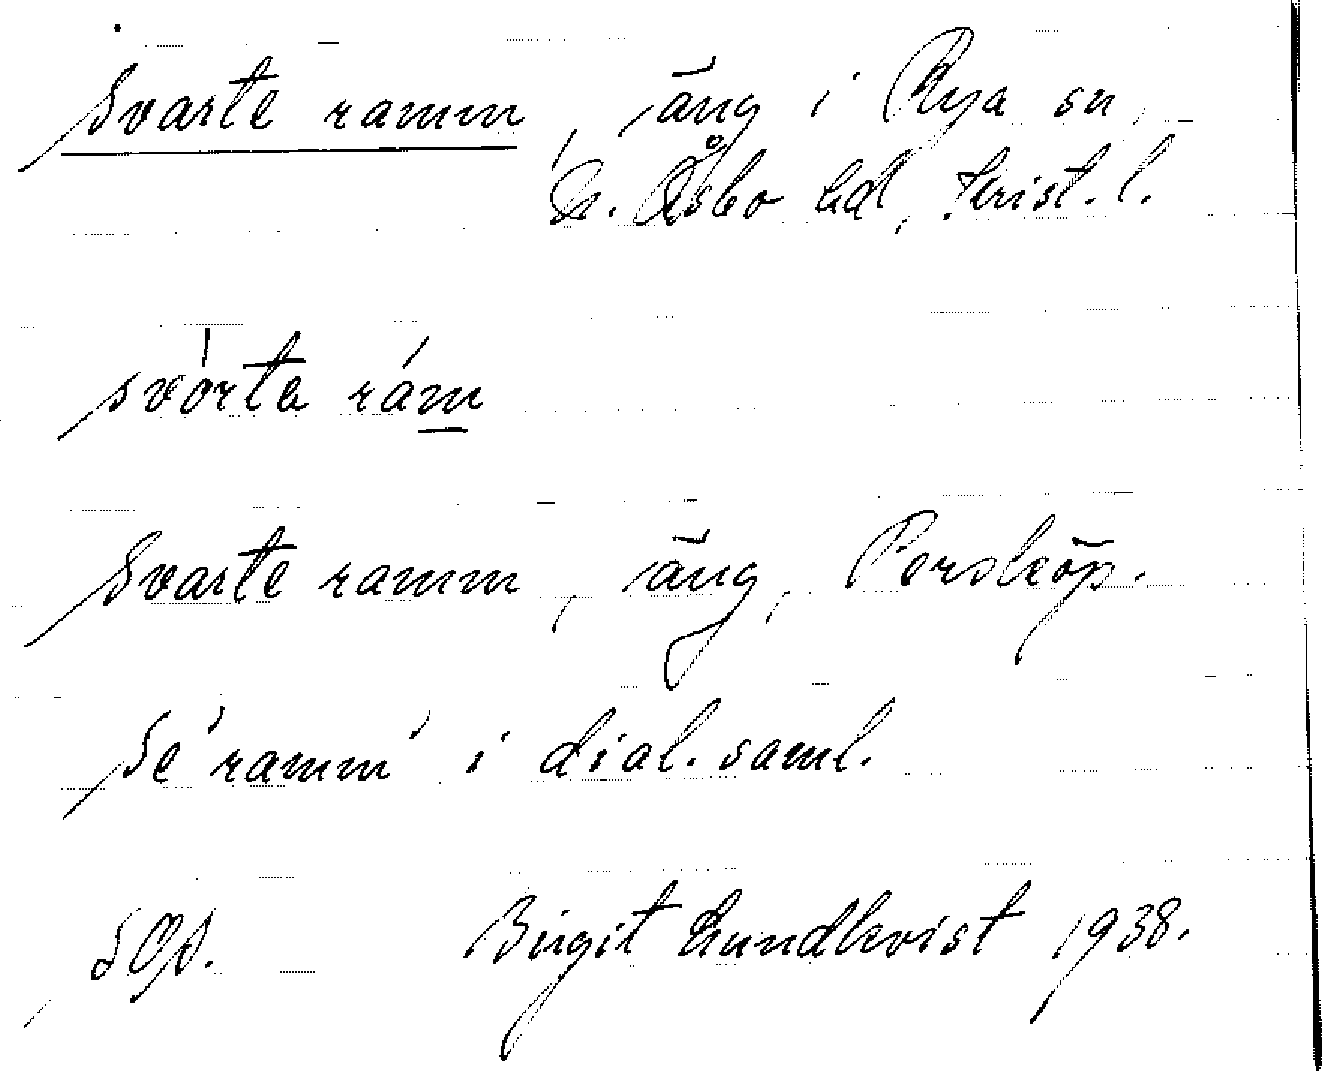 Svarte ramm, äng i Rya sn,
N. Åsbo hd, Krist. l.
svórta rám
Svarte ramm, äng, Persköp.
Se 'ramm' i dial. saml.
Birgit Lundkvist 1938.